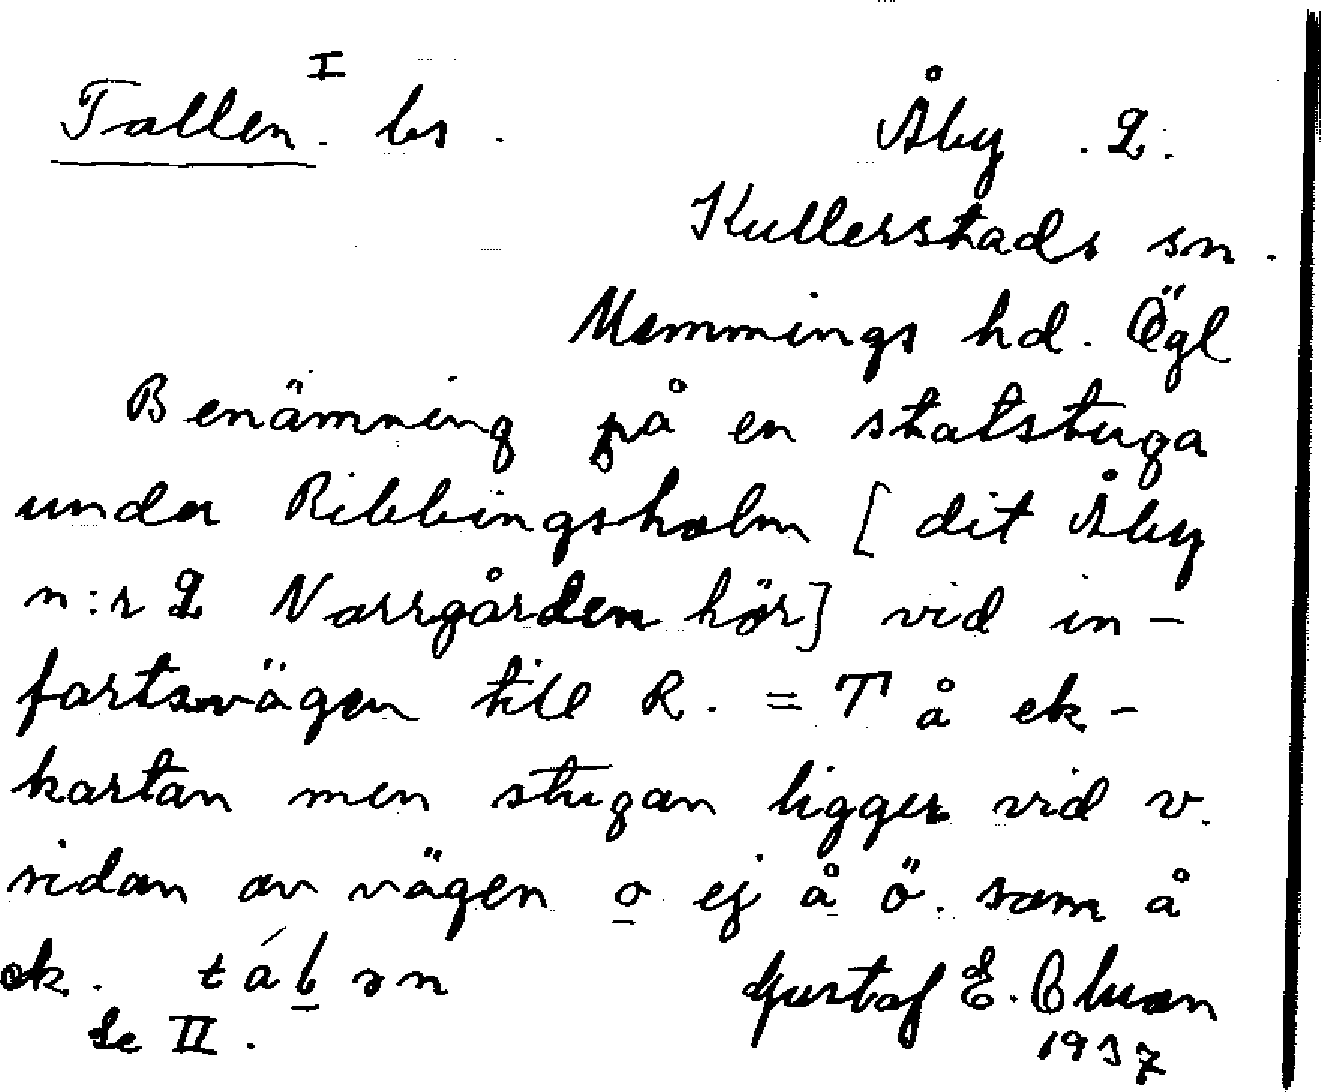 Tallen I. bs. Åby 2.
Kullerstads sn.
Memmings hd. Ögl
Benämning på en statstuga
under Ribbingsholm [dit Åby
n:r 2 Norrgården hör] vid in-
fartsvägen till R. = T å ek-
kartan men stugan ligger vid v.
sidan av vägen o ej å ö. som å
ek.
Se II.
Gustaf E. Cluan
1937